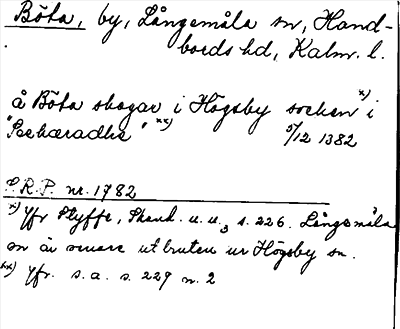 Böta, by, Långemåla sn, Hand-
bords hd, Kalm. l.
å Böta skogar i Högsby socken x) i
"Sæhæradhe" xx) 5/12 1382
S.R.P. nr. 1782
x) Jfr Styffe, Skand. u. u.3 s. 226. Långemåla
sn är senare utbruten ur Högsby sn.
xx) Jfr. s. a. s. 229 n. 2